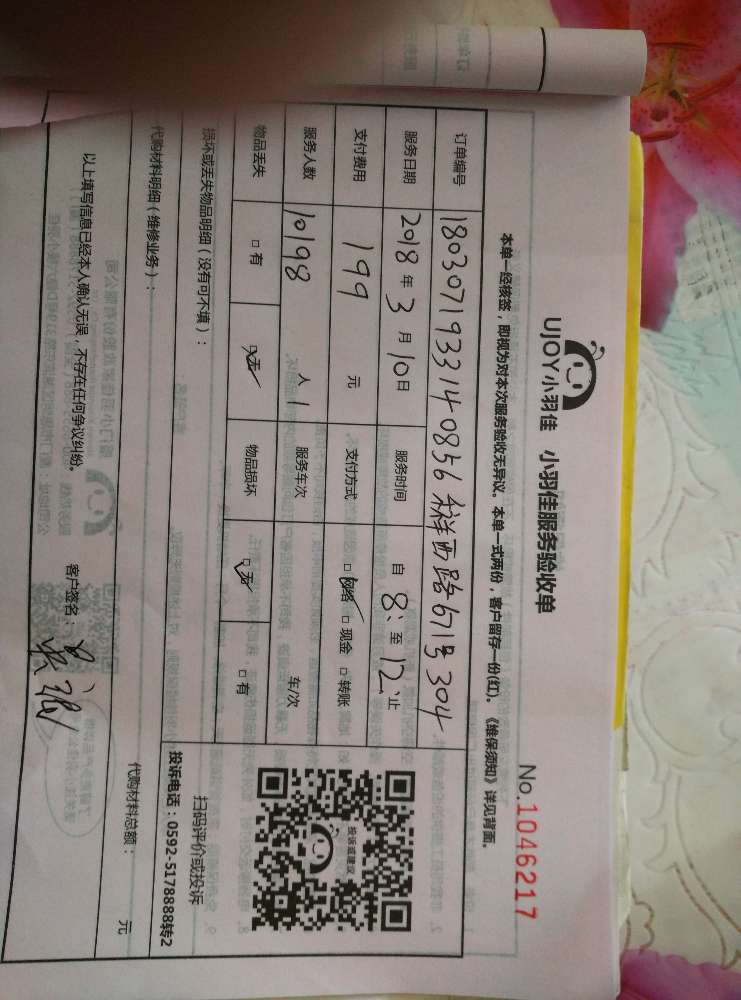 UJOY小羽佳 小羽佳服务验收单
No.1046217
本单一经核签，即视为对本次服务验收无异议。本单一式两份，客户留存一份(红)。《维保须知》详见背面。
订单编号 180307193314 0856 祥西路671号304
服务日期 2018年3月10日 服务时间 自8:至12:止
支付费用 199 元 支付方式 □网络 □现金 □转账
服务人数 10198 人 1 服务车次 车/次
物品丢失 □有 □无 物品损坏 □无 □有
损坏或丢失物品明细（没有可不填）：
投诉或建议
扫码评价或投诉
投诉电话：0592-5178888转2
代购材料明细（维修业务）：
代购材料总额： 元
以上填写信息已经本人确认无误，不存在任何争议纠纷。
客户签名：